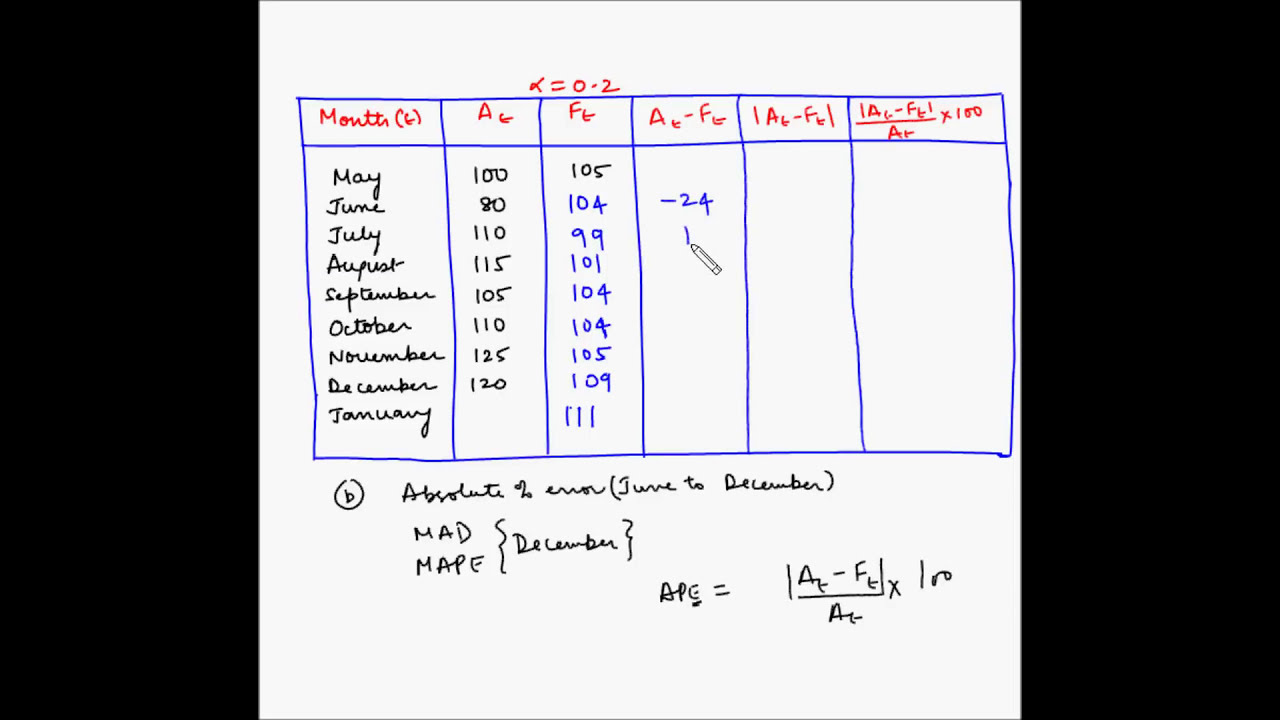 α = 0.2
Month(t) At Ft At-Ft |At-Ft| |At-Ft|/At × 100
May 100 105
June 80 104 -24
July 110 99 1
August 115 101
September 105 104
October 110 104
November 125 105
December 120 109
January 111
(b) Absolute % error (June to December)
MAD
MAPE } {December}
APE = |At-Ft|/At × 100